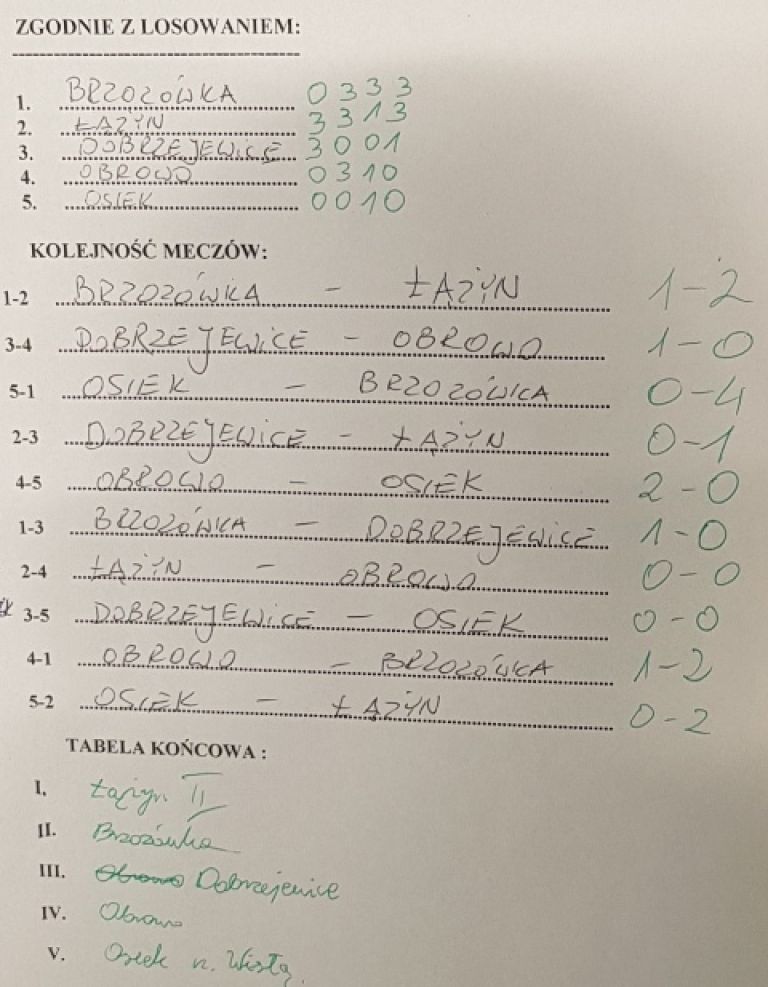 ZGODNIE Z LOSOWANIEM:
1. BRZOZÓWKA 0 3 3 3
2. ŁĄŻYN 3 3 1 3
3. DOBRZEJEWICE 3 0 0 1
4. OBROWO 0 3 1 0
5. OSIEK 0 0 1 0
KOLEJNOŚĆ MECZÓW:
1-2 BRZOZÓWKA - ŁĄŻYN 1-2
3-4 DOBRZEJEWICE - OBROWO 1-0
5-1 OSIEK - BRZOZÓWKA 0-4
2-3 DOBRZEJEWICE - ŁĄŻYN 0-1
4-5 OBROWO - OSIEK 2-0
1-3 BRZOZÓWKA - DOBRZEJEWICE 1-0
2-4 ŁĄŻYN - OBROWO 0-0
3-5 DOBRZEJEWICE - OSIEK 0-0
4-1 OBROWO - BRZOZÓWKA 1-2
5-2 OSIEK - ŁĄŻYN 0-2
TABELA KOŃCOWA :
I. Łążyn II
II. Brzozówka
III. Obrowo Dobrzejewice
IV. Obrowo
V. Osiek n. Wisłą